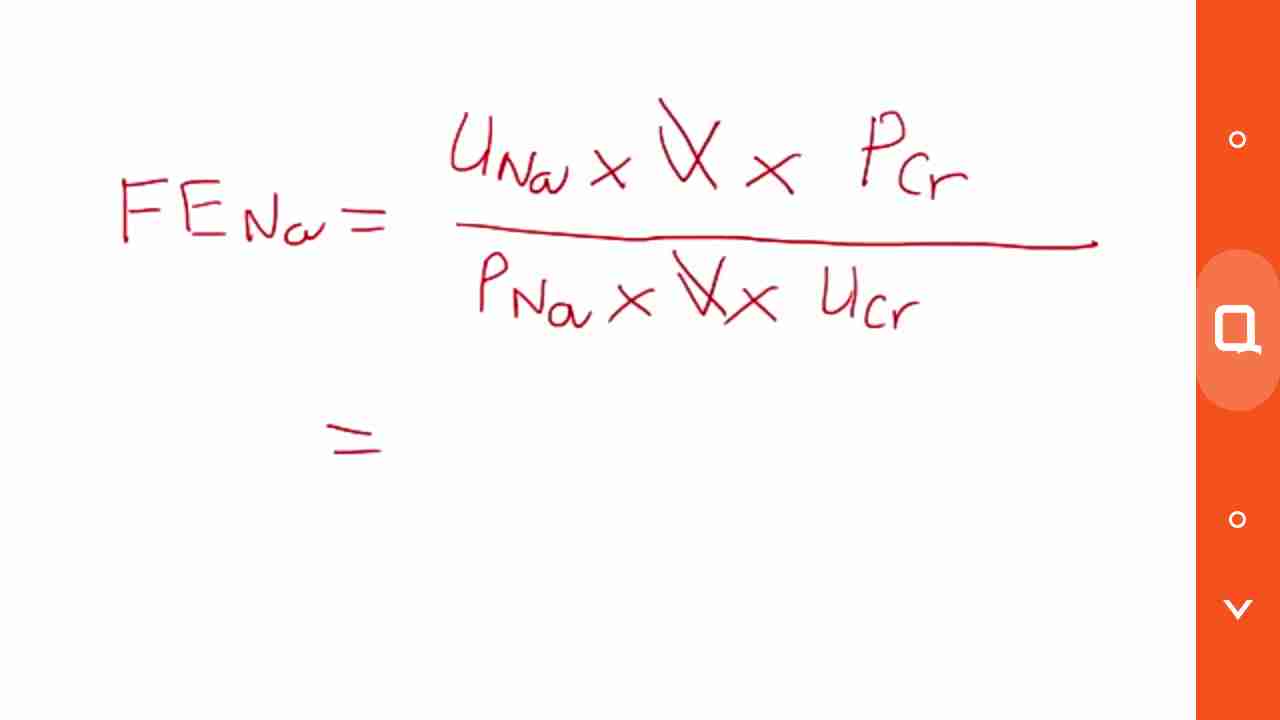 FENa = UNa x V x PCr
PNa x V x UCr
=